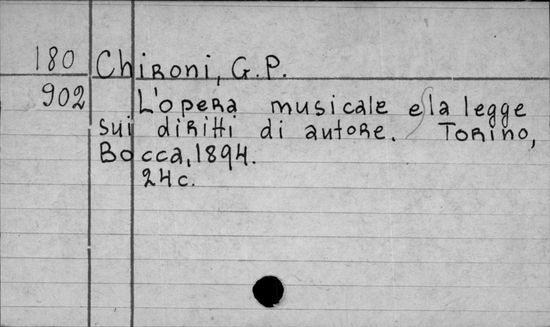 180 Chironi, G.P.
902 L'opera musicale e la legge
sui diritti di autore. Torino,
Bocca, 1894.
24c.